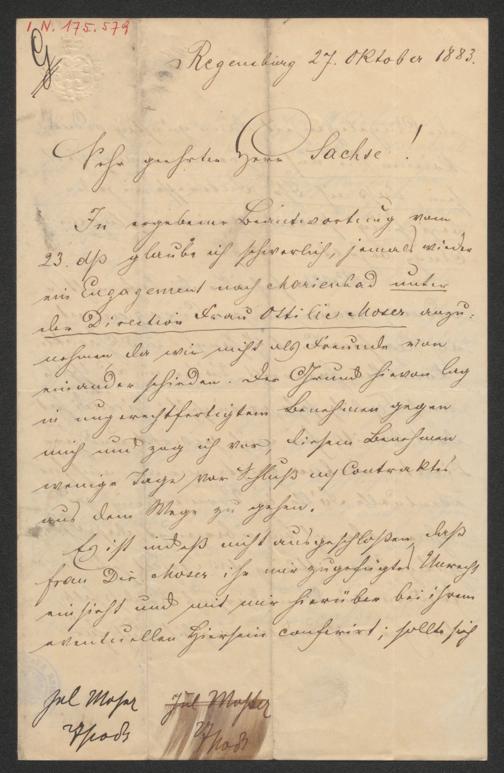 I. N. 175.579
Regensburg 27. Oktober 1883.
Sehr geehrter Herr Sachse!
In ergebener Beantwortung vom
23. dß glaube ich schwerlich, jemals wieder
ein Engagement nach Marienbad unter
der Direction Frau Ottilie Moser anzu-
nehmen da wir nicht als Freunde von
einander schieden. Der Grund hievon lag
in ungerechtfertigtem Benehmen gegen
mich und zog ich vor, diesem Benehmen
wenige Tage vor Schluß des Contraktes
aus dem Wege zu gehen.
Es ist indeß nicht ausgeschloßen, daß
Frau Dir. Moser ihr mir zugefügtes Unrecht
einsieht und mit mir hierüber bei ihrem
eventuellen Hiersein conferirt; sollte sich
Jul Moser Jul Moser